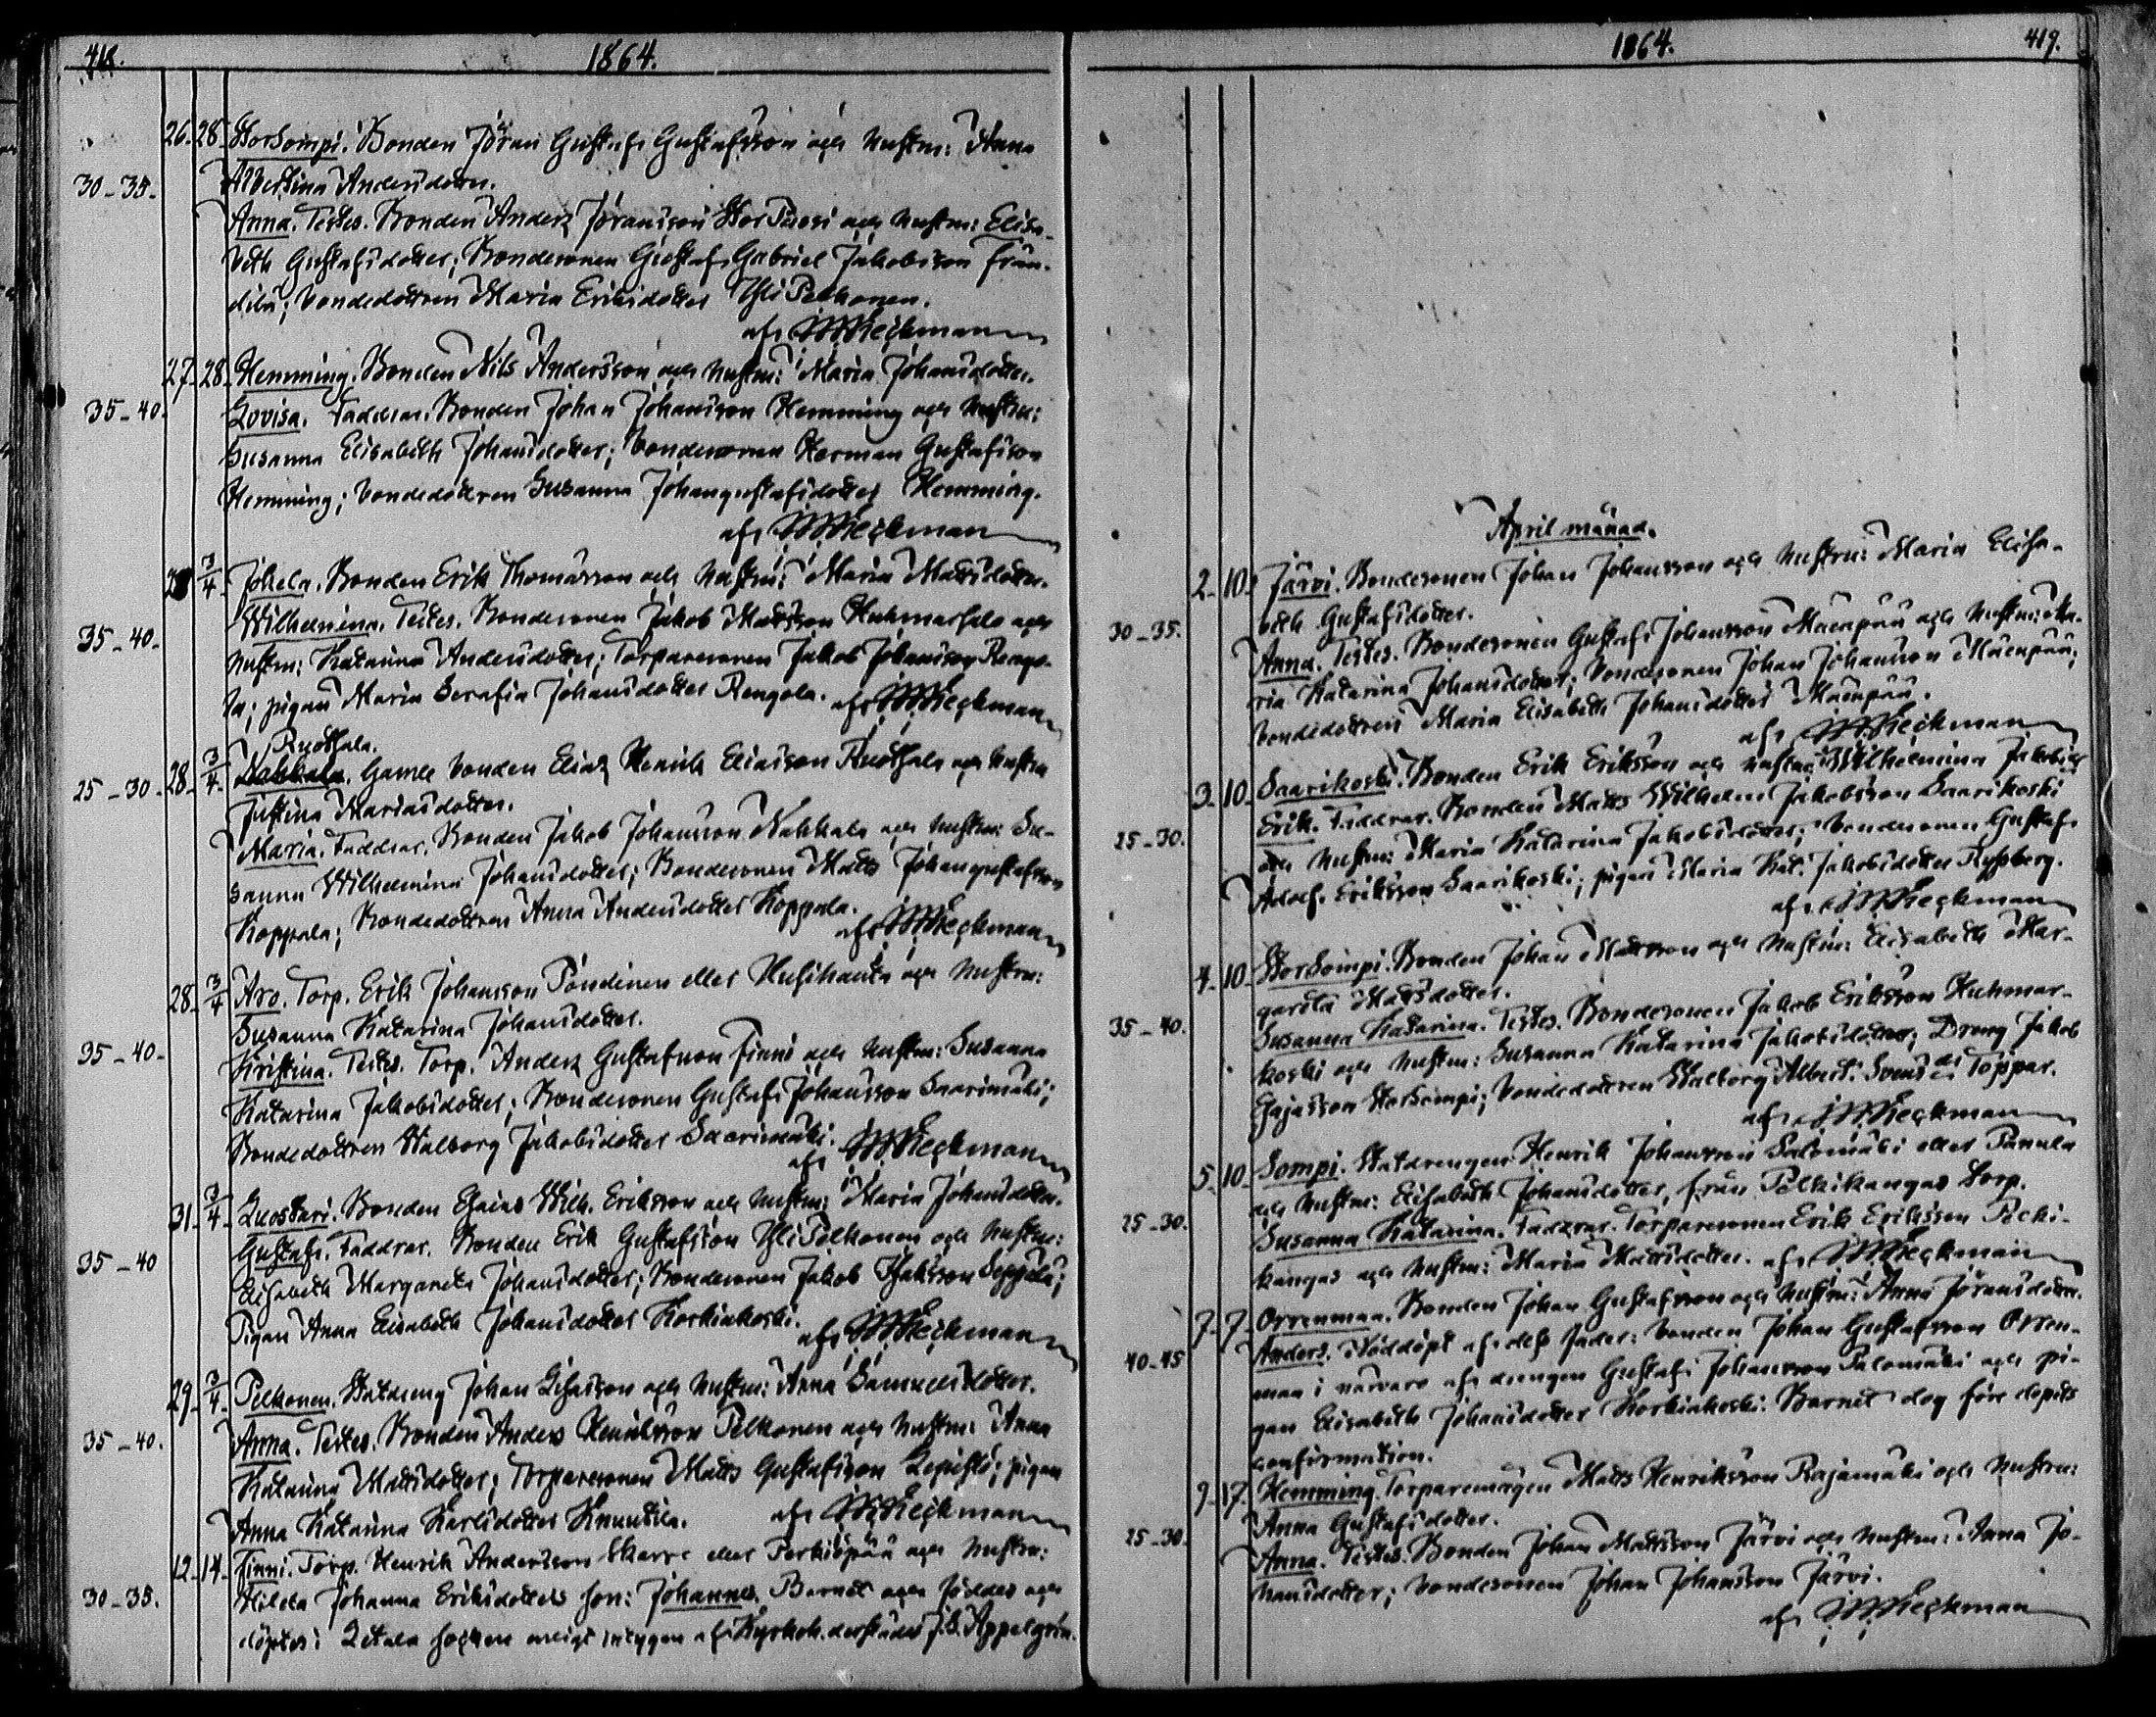 418. 1864.
26. 28. StorSompi. Bonden Jöran Gustaf Gustafsson och hustru: Anna
30-35. Albertina Andersdotter.
Anna. Testes. Bonden Anders Jöransson Stor och hustru: Elisa-
beth Gustafsdotter; Bondesonen Gustaf Gabriel Jakobsson
bondedottren Maria Eriksdotter Yli Pelkonen.
af
27. 28. Hemming. Bonden Nils Andersson och hustru: Maria Johansdotter.
35-40. Lovisa. Faddrar. Bonden Johan Johansson Hemming och hustru:
Susanna Elisabeth Johansdotter; bondesonen Herman Gustafsson
Hemming; bondedottren Susanna Johangustafsdotter Hemming.
af
28 3/4 Bonden Erik Thomasson och hustru: Maria Mattsdotter.
Wilhelmina. Testes. Bondesonen Jakob Mattsson och
35-40. hustru: Katarina Andersdotter; Torparesonen Jakob Johansson Rengo-
la; pigan Maria Serafia Johansdotter Rengola. af
Ruothala.
25-30. 28. 3/4 Nahkala. Gamle bonden Elias Henrik Eliasson Ruothala och hustru
Justina Mariasdotter.
Maria. Faddrar. Bonden Jakob Johansson Nahkala och hustru: Su-
sanna Wilhelmina Johansdotter; Bondesonen Matts Johangustafsson
Koppala; Bondedottren Anna Andersdotter Koppala.
af
28. 3/4 Aro. Torp. Erik Johansson eller och hustru:
Susanna Katarina Johansdotter.
35-40. Kristina. Testes. Torp. Anders Gustafsson Finni och hustru: Susanna
Katarina Jakobsdotter; Bondesonen Gustaf Johansson Saarimäki;
Bondedottren Walborg Jakobsdotter Saarimäki.
af
31. 3/4 Luostari. Bonden Esaias Wilh. Eriksson och hustru: Maria Johansdotter.
Gustaf. Faddrar. Bonden Erik Gustafsson Yli Pelkonen och hustru:
35-40 Elisabeth Margareta Johansdotter; Bondesonen Jakob Isaksson Seppälä;
Pigan Anna Elisabeth Johansdotter Korkiakoski.
af
29. 3/4 Pelkonen. Statdreng Johan Esaiasson och hustru: Anna Samuelsdotter.
35-40. Anna. Testes. Bonden Anders Henriksson Pelkonen och hustru: Anna
Katarina Mattsdotter; Torparesonen Matts Gustafsson Lepistö; pigan
Anna Katarina Karlsdotter Knuutila. af
12. 14. Finni. Torp. Henrik Andersson Skarre eller Porkiöpää och hustru:
30-35. Hilda Johanna Eriksdotters son: Johannes. Barnet var föddes och
döptes i Letala socken enligt intygen af Kyrkoh. derstädes J.S. Appelgrén.
1864. 419.
April månad.
2. 10. Järvi. Bondesonen Johan Johansson och hustru: Maria Elisa-
30-35. beth Gustafsdotter.
Anna. Testes. Bondesonen Gustaf Johansson Mäenpää och hustru: Ma-
ria Katarina Johansdotter; bondesonen Johan Johansson Mäenpää;
bondedottren Maria Elisabeth Johansdotter Mäenpää.
af
3. 10. Saarikoski. Bonden Erik Eriksson och hustru: Wilhelmina Jakobsd:
25-30. Erik. Faddrar. Bonden Matts Wilhelm Jakobsson Saarikoski
och hustru: Maria Katarina Jakobsdotter; bondesonen Gustaf
Adolf Eriksson Saarikoski; pigan Maria Kat. Jakobsdotter Ryssberg.
af
4. 10. StorSompi. Bonden Johan Mattsson och hustru: Elisabeth Mar-
gareta Mattsdotter.
35-40. Susanna Katarina. Testes. Bondesonen Jakob Eriksson Huhmar-
koski och hustru: Susanna Katarina Jakobsdotter; Dreng Jakob
Esajasson StorSompi; bondedottren Walborg Albert. Svensdr Toppar.
af
5. 10. Sompi. Statdrengen Henrik Johansson Salomäki eller Panula
25-30. och hustru: Elisabeth Johansdotter, från Pelkikangas torp.
Susanna Katarina. Faddrar. Torparesonen Erik Eriksson Pelki-
kangas och hustru: Maria Mattsdotter. af
7. 7. Orrenmaa. Bonden Johan Gustafsson och hustru: Anna Jöransdotter.
40-45 Anders. Nöddöpt af dess fader: bonden Johan Gustafsson Orren-
maa i närvaro af drengen Gustaf Johansson Palomäki och pi-
gan Elisabeth Johansdotter Korkiakoski. Barnet dog före dopets
confirmation.
9. 17. Hemming. Torparemågen Matts Henriksson Rajamäki och hustru:
25-30. Anna Gustafsdotter.
Anna. Testes. Bonden Johan Mattsson Järvi och hustru: Anna Jo-
hansdotter; bondesonen Johan Johansson Järvi.
af